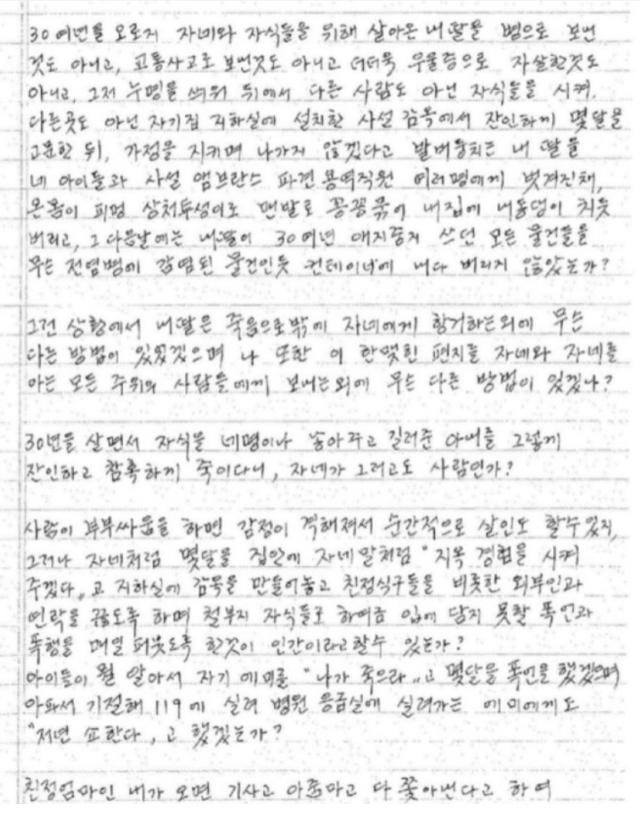 30여년을 오로지 자네와 자식들을 위해 살아온 내 딸을 병으로 보낸
것도 아니고, 교통사고로 보낸것도 아니고 더더욱 우울증으로 자살한것도
아니고, 그저 누명을 씌워 뒤에서 다른 사람도 아닌 자식들을 시켜,
다른곳도 아닌 자기집 지하실에 설치한 사설 감옥에서 잔인하게 몇달을
고문한 뒤, 가정을 지키며 나가지 않겠다고 발버둥치는 내 딸을
네 아이들과 사설 앰브란스 파견 용역직원 여러명에게 벗겨진채,
온몸이 피멍 상처투성이로 맨발로 꽁꽁묶어 내집에 내동댕이 치듯
버리고, 그 다음날에는 내딸이 30여년 애지중지 쓰던 모든 물건들을
무슨 전염병에 감염된 물건인듯 컨테이너에 내다 버리지 않았는가?
그런 상황에서 내딸은 죽음으로밖에 자네에게 항거하는외에 무슨
다른 방법이 있었겠으며 나 또한 이 한맺힌 편지를 자네와 자네를
아는 모든 주위의 사람들에게 보내는외에 무슨 다른 방법이 있겠나?
30년을 살면서 자식을 네명이나 낳아주고 길러준 아내를 그렇게
잔인하고 참혹하게 죽이다니, 자네가 그러고도 사람인가?
사람이 부부싸움을 하면 감정이 격해져서 순간적으로 살인도 할수 있지,
그러나 자네처럼 몇달을 집안에 자네말처럼 "지옥 경험을 시켜
주겠다, 고 지하실에 감옥을 만들어놓고 친정식구들을 비롯한 외부인과
연락을 끊도록 하며 철부지 자식들로 하여금 입에 담지 못할 폭언과
폭행을 매일 퍼붓도록 한것이 인간이라고할수 있는가?
아이들이 뭘 알아서 자기 에미를 "나가 죽으라,, 고 몇달을 폭언을 했겠으며
아파서 기절해 119에 실려 병원 응급실에 실려가는 에미에게도
"저년 쇼한다, 고 했겠는가?
친정엄마인 내가 오면 기사고 아줌마고 다 쫓아낸다고 하여